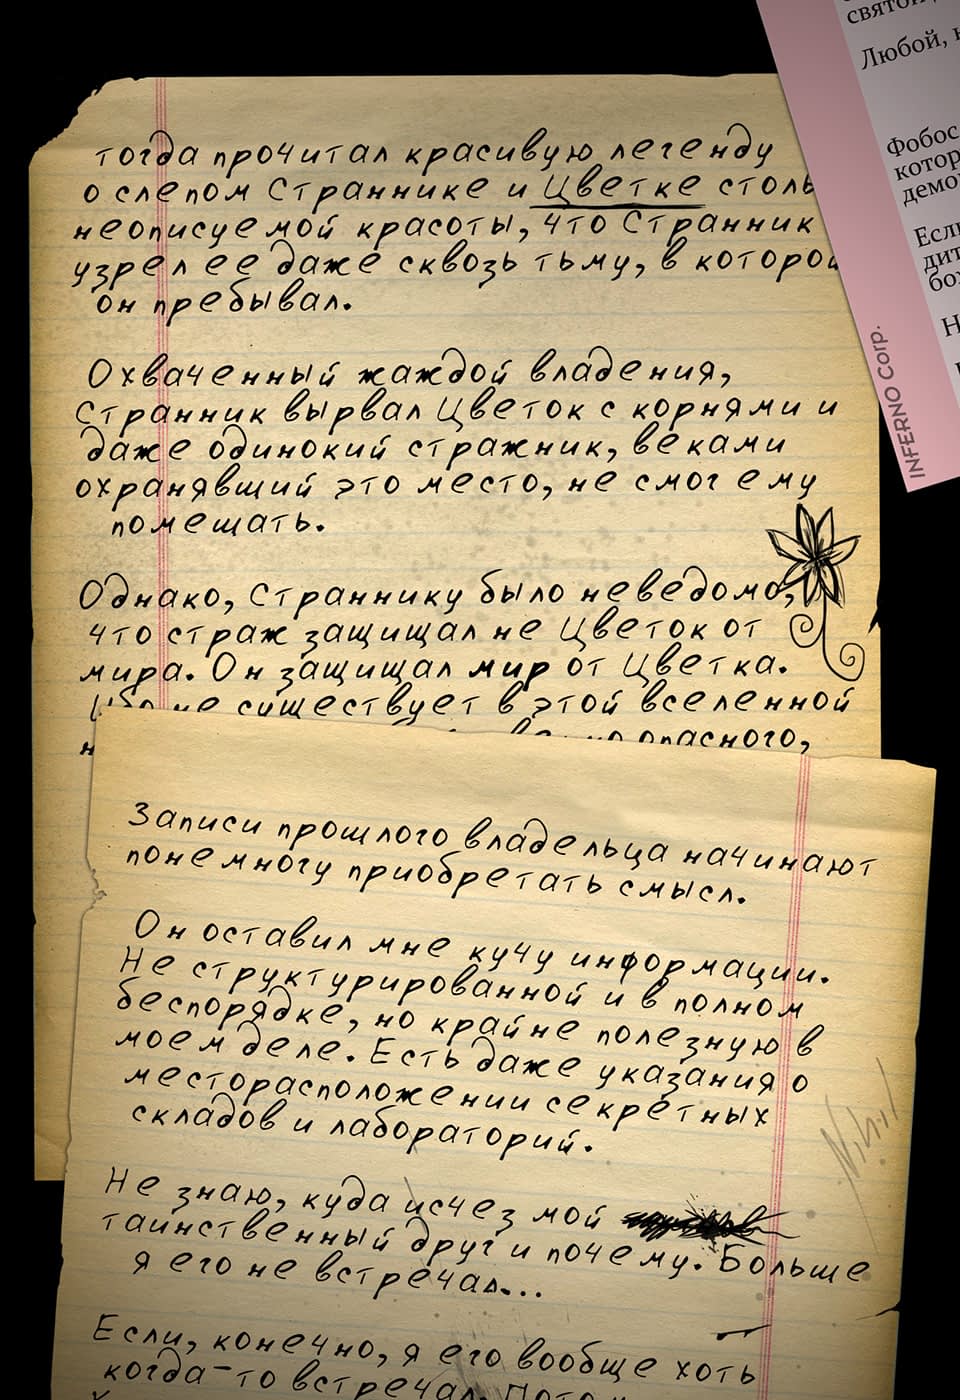 тогда прочитал красивую легенду
о слепом Страннике и Цветке столь
неописуемой красоты, что Странник
узрел ее даже сквозь тьму, в которой
он пребывал.
Охваченный жаждой владения,
Странник вырвал Цветок с корнями и
даже одинокий стражник, веками
охранявший это место, не смог ему
помешать.
Однако, Страннику было неведомо,
что страж защищал не Цветок от
мира. Он защищал мир от Цветка.
Ибо не существует в этой вселенной
опасного,
Записи прошлого владельца начинают
понемногу приобретать смысл.
Он оставил мне кучу информации.
Не структурированной и в полном
беспорядке, но крайне полезную в
моем деле. Есть даже указания о
месторасположении секретных
складов и лабораторий.
Не знаю, куда исчез мой
таинственный друг и почему. Больше
я его не встречал...
Если, конечно, я его вообще хоть
когда-то встречал.
Nihil
святой
Любой,
Фобос
котор
демо
Если
дит
бо
Н
INFERNO Corp.